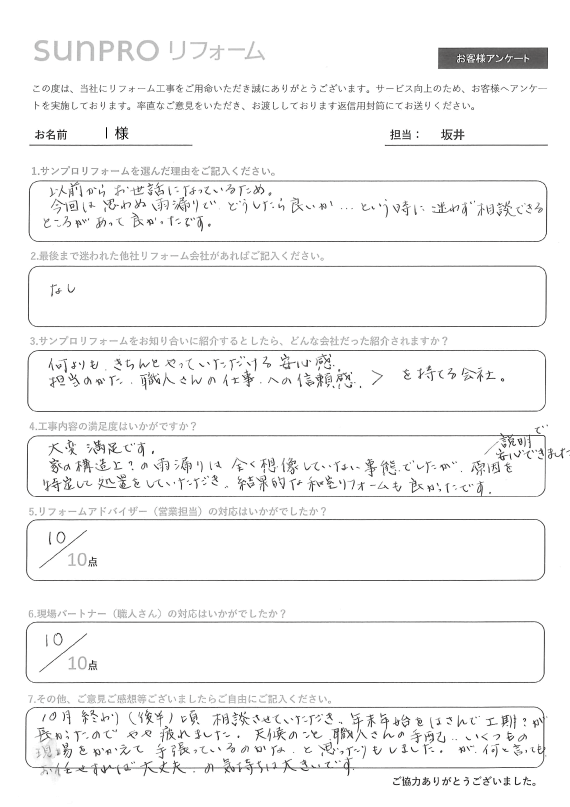 SUNPRO リフォーム
お客様アンケート
この度は、当社にリフォーム工事をご用命いただき誠にありがとうございます。サービス向上のため、お客様へアンケートを実施しております。率直なご意見をいただき、お渡ししております返信用封筒にてお送りください。
お名前 I 様
担当： 坂井
1.サンプロリフォームを選んだ理由をご記入ください。
以前から お世話になっているため。
今回は 思わぬ 雨漏りで、どうしたら良いか…という時に 迷わず 相談できる
ところがあって 良かったです。
2.最後まで迷われた他社リフォーム会社があればご記入ください。
なし
3.サンプロリフォームをお知り合いに紹介するとしたら、どんな会社だった紹介されますか？
何よりも、きちんとやっていただける 安心感、
担当のかた、職人さんの仕事、への信頼感、> を持てる会社。
4.工事内容の満足度はいかがですか？
大変 満足です。
家の構造上？の雨漏りは 全く想像していない事態でしたが、原因を
特定して処置をしていただき、結果的な和室リフォームも 良かったです。
説明で
安心できました
5.リフォームアドバイザー（営業担当）の対応はいかがでしたか？
10／10点
6.現場パートナー（職人さん）の対応はいかがでしたか？
10／10点
7.その他、ご意見ご感想等ございましたらご自由にご記入ください。
10月 終わり（後半）頃 相談させていただき、年末年始をはさんで工期？が
長かったので やや疲れました。天候のこと 職人さんの手配、いくつもの
現場をかかえて 手張っているのかな、と思ったりもしました。が、何と言っても
お任せすれば 大丈夫、の気持ちは大きいです。
ご協力ありがとうございました。